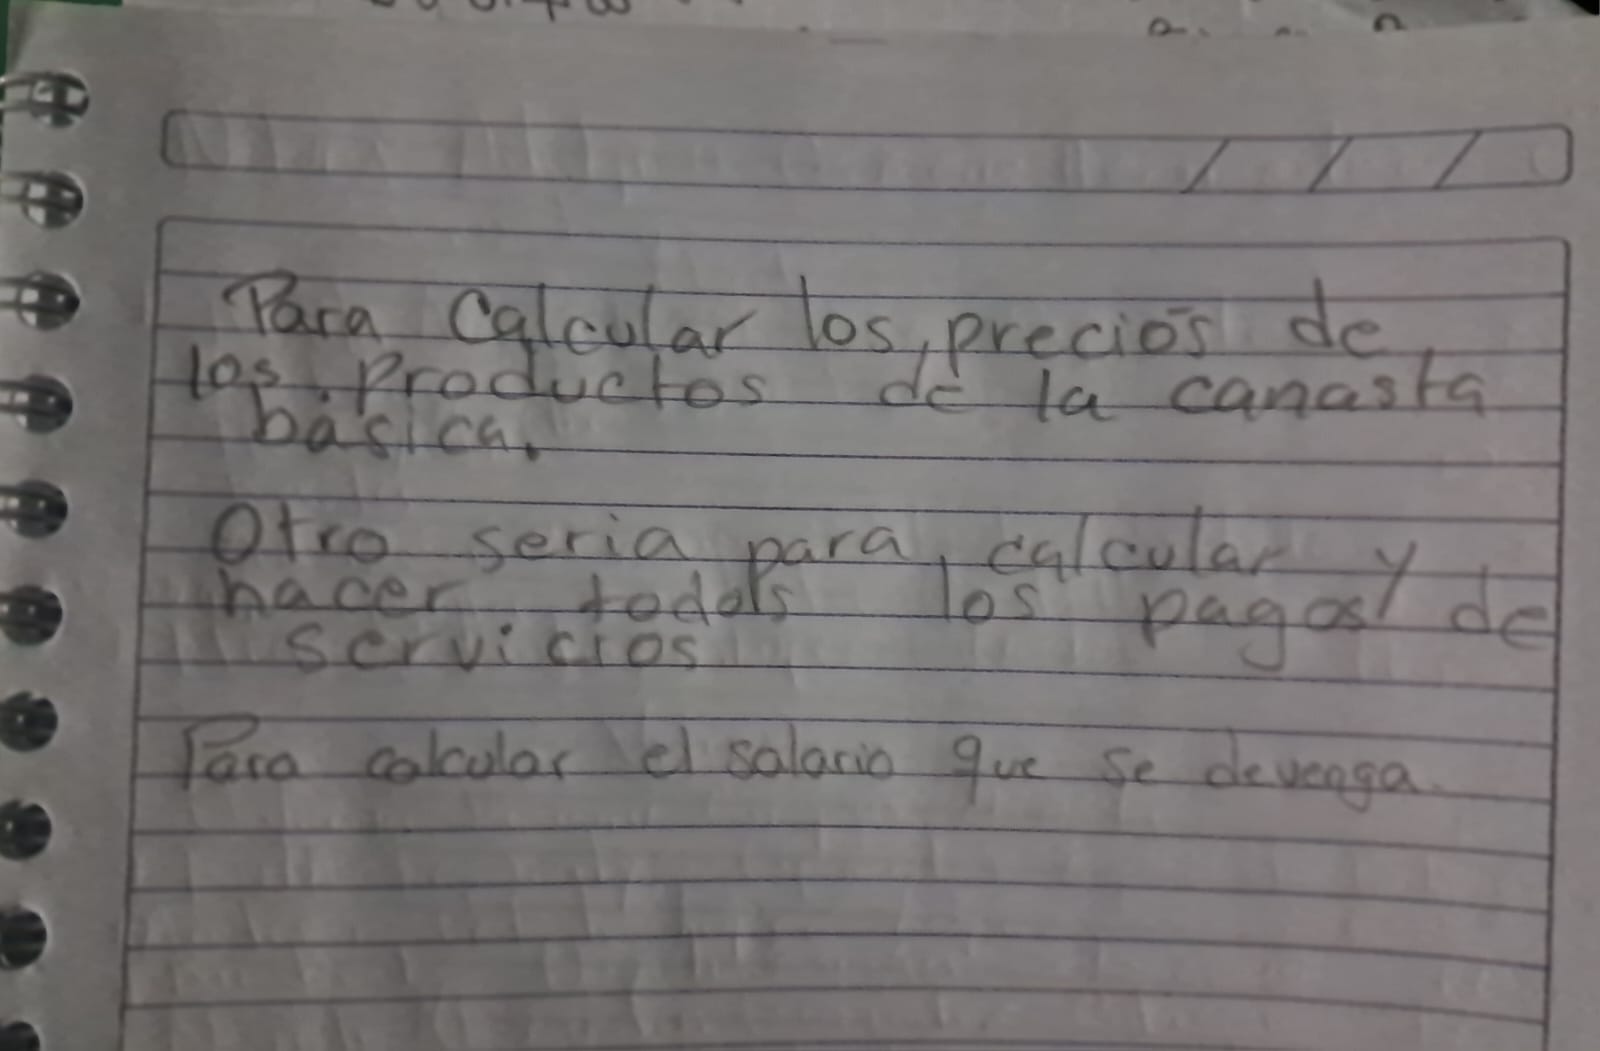 Para Calcular los precios de
los productos de la canasta
básica.
Otro seria para calcular y
hacer todos los pagos de
servicios
Para calcular el salario que se devenga.